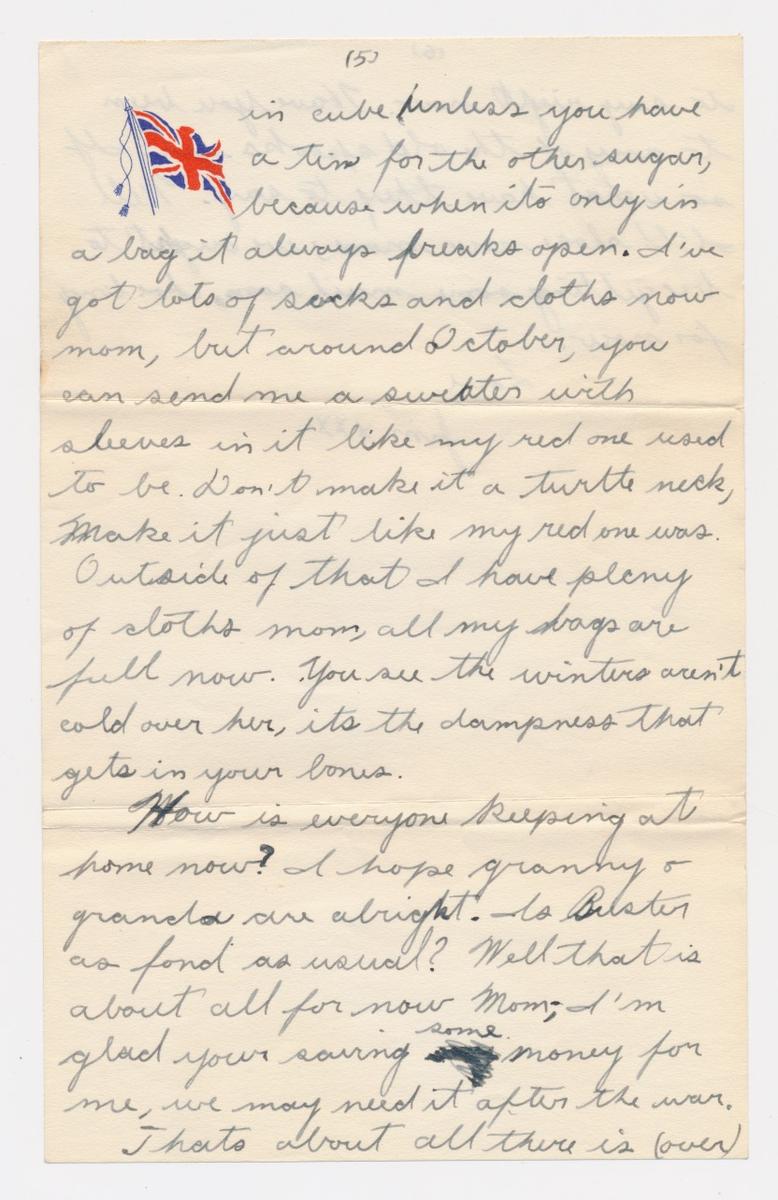 (5)
in cube unless you have
a tin for the other sugar,
because when its only in
a bag it always breaks open. I've
got lots of socks and cloths now
mom, but around October, you
can send me a sweater with
sleeves in it like my red one used
to be. Don't make it a turtle neck,
Make it just like my red one was.
Outside of that I have pleny
of cloths mom, all my bags are
full now. You see the winters aren't
cold over her, its the dampness that
gets in your bones.
How is everyone keeping at
home now? I hope granny &
granda are alright. Is Buster
as fond as usual? Well that is
about all for now Mom, I'm
glad your saving some money for
me, we may need it after the war.
Thats about all there is (over)